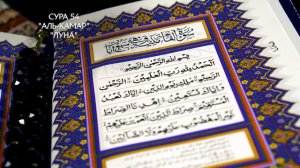 СУРА 54
"АЛЬ-КАМАР"
"ЛУНА"
بِسْمِ اللَّهِ الرَّحْمَٰنِ الرَّحِيمِ
الْحَمْدُ لِلَّهِ رَبِّ الْعَالَمِينَ الرَّحْمَٰنِ
الرَّحِيمِ مَالِكِ يَوْمِ الدِّينِ إِيَّاكَ نَعْبُدُ
وَإِيَّاكَ نَسْتَعِينُ اهْدِنَا الصِّرَاطَ
الْمُسْتَقِيمَ صِرَاطَ الَّذِينَ أَنْعَمْتَ عَلَيْهِمْ
غَيْرِ الْمَغْضُوبِ عَلَيْهِمْ وَلَا الضَّالِّينَ